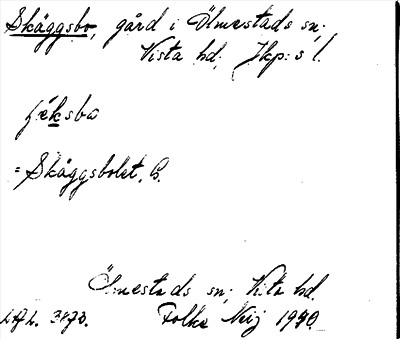 Skäggsbo, gård i Ölmestads sn;
Vista hd; Jkp:s l.
= Skäggsbolet, b.
Ölmestads sn; Vista hd.
Folke Neij 1940.